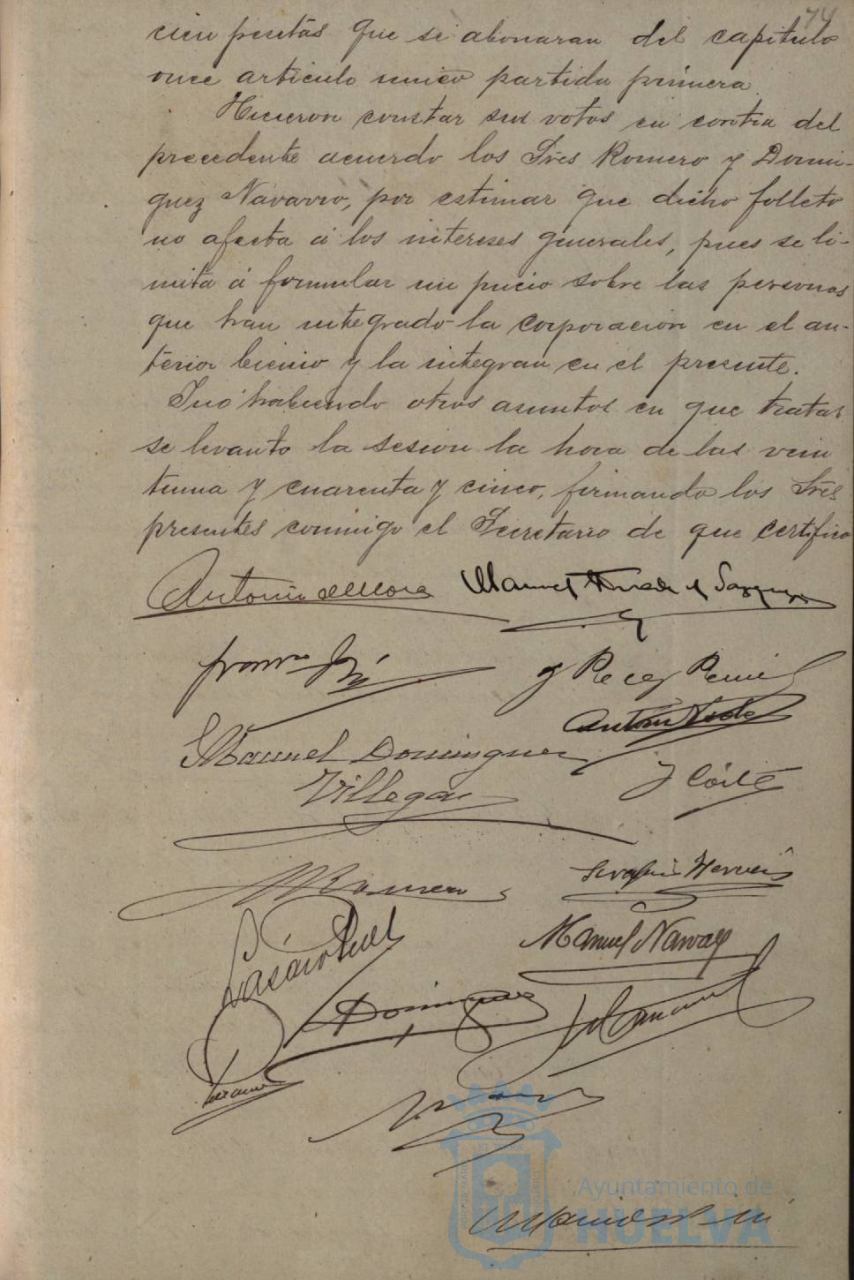 74
cien pesetas que se abonaran del capitulo
once articulo unico partida primera
Hicieron constar sus votos en contra del
precedente acuerdo los Sres Romero y Domin-
guez Navarro, por estimar que dicho folleto
no afecta á los intereses generales, pues se li-
mita á formular un juicio sobre las personas
que han integrado la corporacion en el an-
terior bienio y la integran en el presente.
Y no habiendo otros asuntos en que tratar
se levanto la sesion la hora de las vein
tiuna y cuarenta y cinco, firmando los Sres
presentes conmigo el Secretario de que certifico
Antonio de Mora Manuel
Manuel Dominguez
Villegas
Romero
Manuel Narvaez
Dominguez
Ayuntamiento de
HUELVA